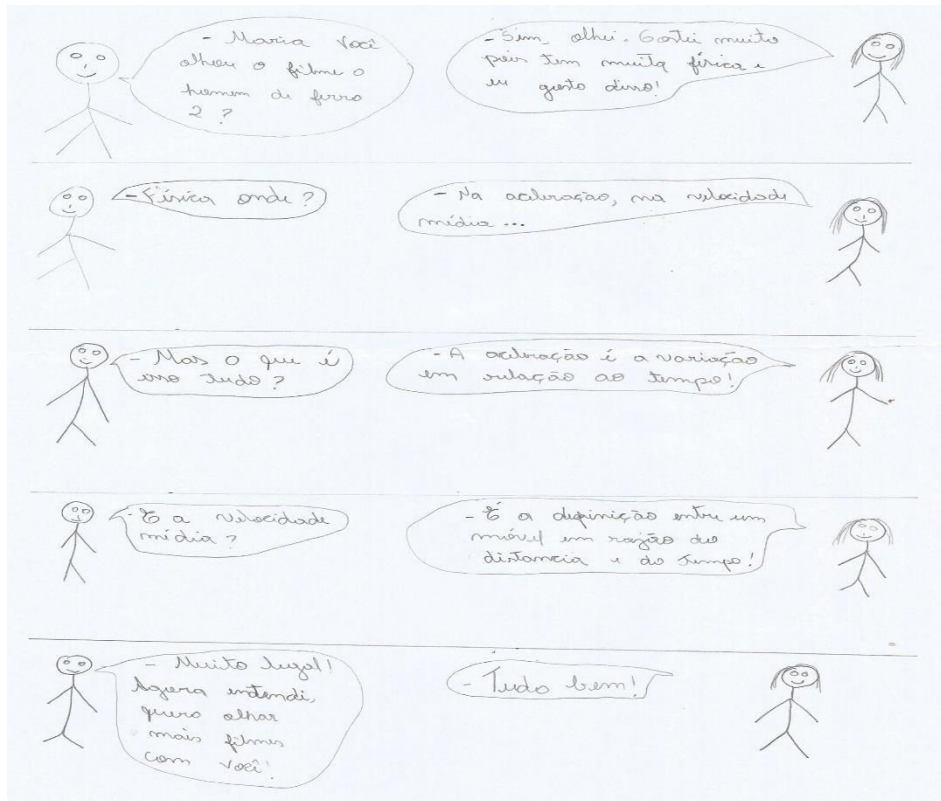 - Maria você
olhou o filme o
homem de ferro
2 ?
- Sim, olhei. Gostei muito
pois tem muita física e
eu gosto disso!
- Física onde ?
- Na aceleração, na velocidade
média ...
- Mas o que é
isso tudo ?
- A aceleração é a variação
em relação ao tempo!
- E a velocidade
média ?
- É a definição entre um
móvel em razão da
distancia e do tempo!
- Muito legal!
Agora entendi,
quero olhar
mais filmes
com você!
- Tudo bem!